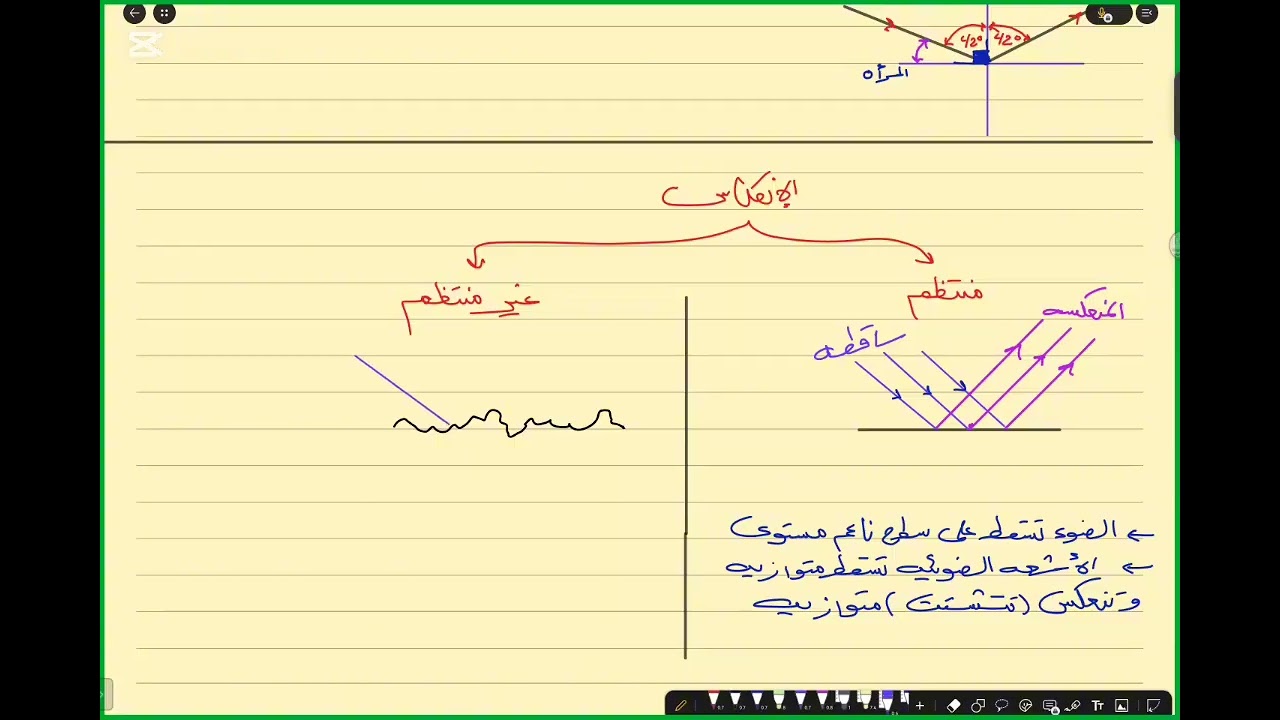 42° 42°
المرأه
الإنعكاس
منتظم
غير منتظم
المنعكسه
ساقطه
← الضوء تسقط على سطح ناعم مستوى
← الأشعه الضوئيه تسقط متوازيه
وتنعكس (تتشتت) متوازيه